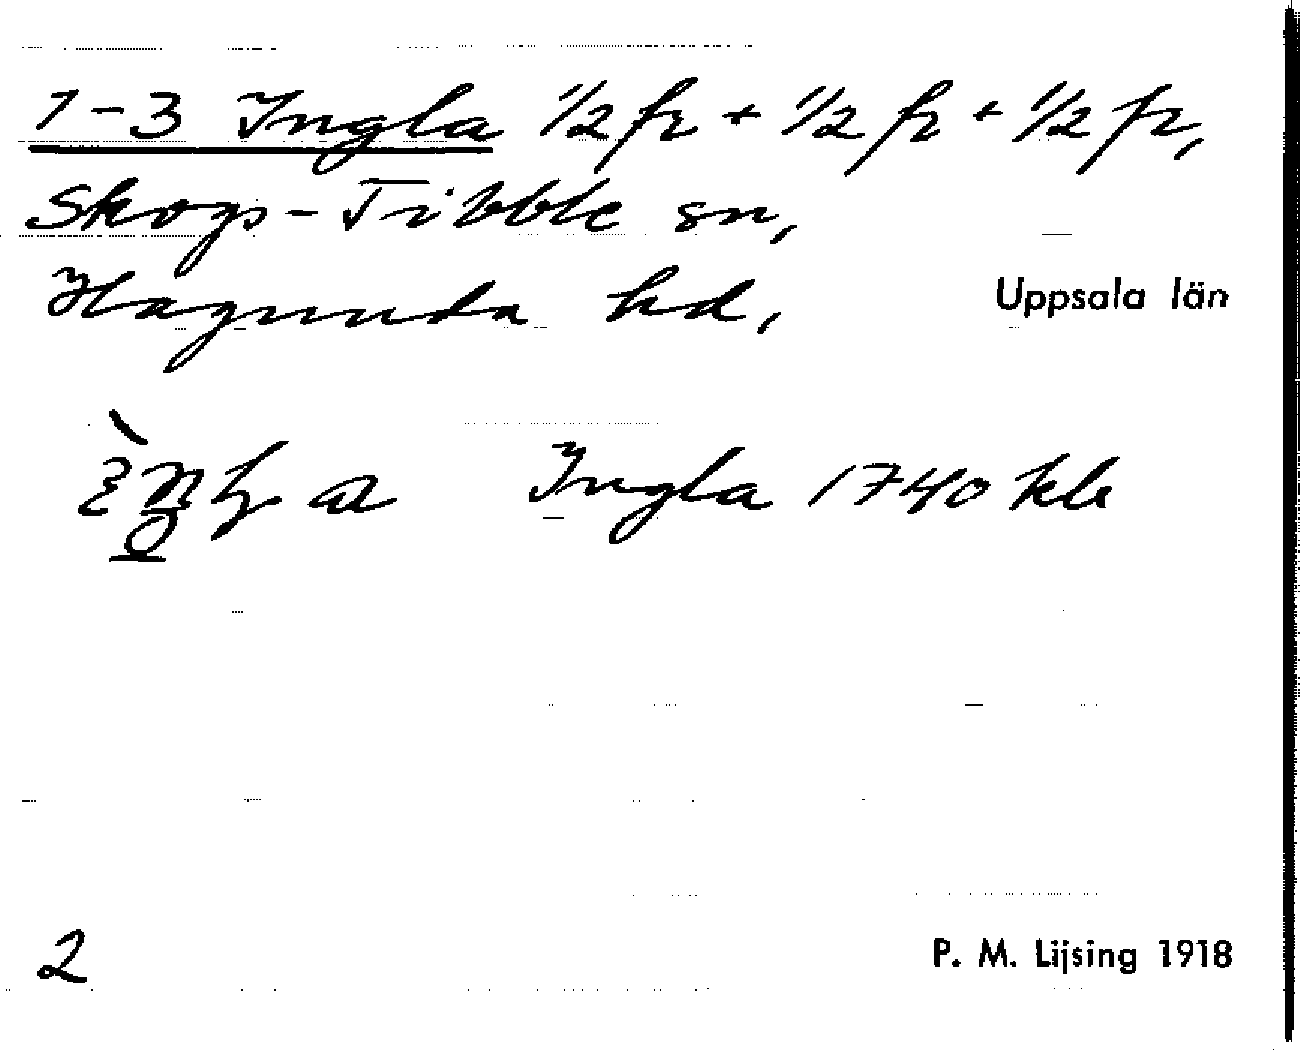 1-3 Ingla 1/2 fr + 1/2 fr + 1/2 fr,
Skogs-Tibble sn,
Hagunda hd,
Uppsala län
Ingla 1740 kle
2
P. M. Lijsing 1918